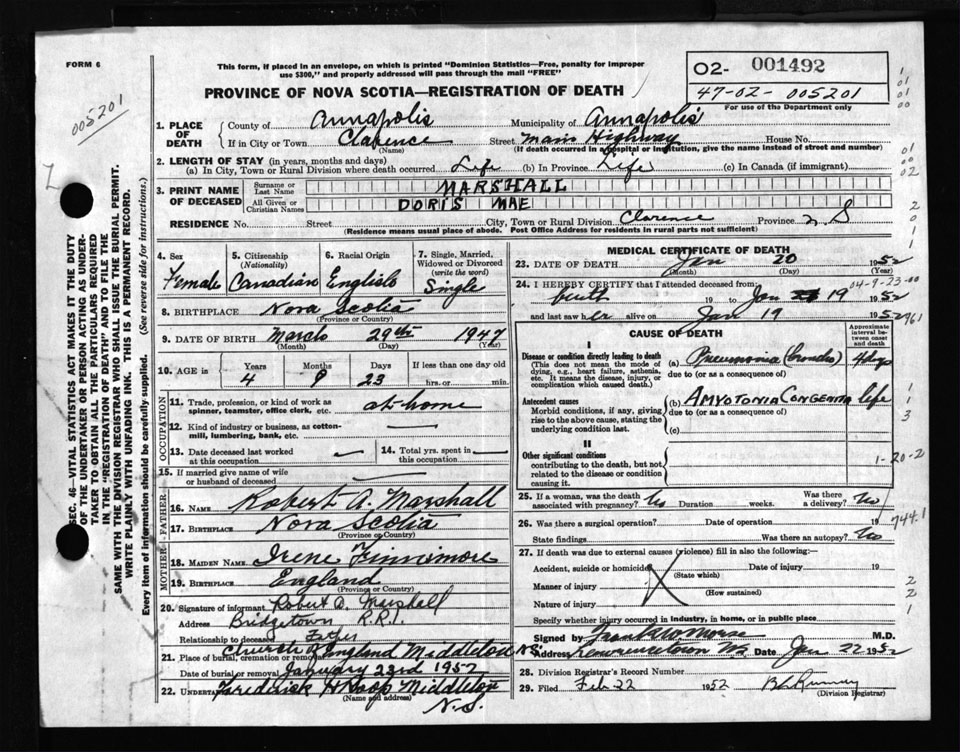 FORM 6
This form, if placed in an envelope, on which is printed "Dominion Statistics—Free, penalty for improper
use $300," and properly addressed will pass through the mail "FREE"
PROVINCE OF NOVA SCOTIA—REGISTRATION OF DEATH
O2- 001492
47-02- 005201
For use of the Department only
005201
1. PLACE OF DEATH
County of Annapolis Municipality of Annapolis
If in City or Town Clarence Street Main Highway House No.
(Name) (If death occurred in a hospital or institution, give the name instead of street and number)
2. LENGTH OF STAY (in years, months and days)
(a) In City, Town or Rural Division where death occurred Life (b) In Province Life (c) In Canada (if immigrant)
3. PRINT NAME OF DECEASED
Surname or Last Name MARSHALL
All Given or Christian Names DORIS MAE
RESIDENCE No. Street City, Town or Rural Division Clarence Province N.S
(Residence means usual place of abode. Post Office Address for residents in rural parts not sufficient)
SEC. 46—VITAL STATISTICS ACT MAKES IT THE DUTY
OF THE UNDERTAKER OR PERSON ACTING AS UNDER-
TAKER TO OBTAIN ALL THE PARTICULARS REQUIRED
IN THE "REGISTRATION OF DEATH" AND TO FILE THE
SAME WITH THE DIVISION REGISTRAR WHO SHALL ISSUE THE BURIAL PERMIT.
WRITE PLAINLY WITH UNFADING INK. THIS IS A PERMANENT RECORD.
Every item of information should be carefully supplied. (See reverse side for instructions.)
4. Sex Female
5. Citizenship (Nationality) Canadian
6. Racial Origin English
7. Single, Married, Widowed or Divorced (write the word) Single
8. BIRTHPLACE Nova Scotia
(Province or Country)
9. DATE OF BIRTH March 29th 1947
(Month) (Day) (Year)
10. AGE in Years Months Days If less than one day old
4 9 23 hrs. or min.
OCCUPATION
11. Trade, profession, or kind of work as
spinner, teamster, office clerk, etc. at home
12. Kind of industry or business, as cotton-
mill, lumbering, bank, etc. —
13. Date deceased last worked
at this occupation —
14. Total yrs. spent in
this occupation —
15. If married give name of wife
or husband of deceased —
FATHER
16. Name Robert A. Marshall
17. Birthplace Nova Scotia
(Province or Country)
MOTHER
18. Maiden Name Irene Finnimore
19. Birthplace England
(Province or Country)
20. Signature of informant Robert A. Marshall
Address Bridgetown R.R.1.
Relationship to deceased Father
21. Place of burial, cremation or removal Church of England Middleton N.S.
Date of burial or removal January 23rd 1952
22. Undertaker Frederick H Roop Middleton
(Name and address) N.S.
MEDICAL CERTIFICATE OF DEATH
23. DATE OF DEATH Jan 20 1952
(Month) (Day) (Year)
24. I HEREBY CERTIFY that I attended deceased from: 04-9-23-00
birth 19 to Jan 19 1952
and last saw her alive on Jan 19 1952
961
CAUSE OF DEATH
Approximate interval between onset and death
I
Disease or condition directly leading to death
(This does not mean the mode of dying, e.g., heart failure, asthenia, etc. It means the disease, injury, or complication which caused death.)
(a) Pneumonia (broncho) 4 days
due to (or as a consequence of)
Antecedent causes
Morbid conditions, if any, giving rise to the above cause, stating the underlying condition last.
(b) AMYOTONIA CONGENITA life
due to (or as a consequence of)
(c)
II
Other significant conditions
contributing to the death, but not related to the disease or condition causing it.
1-20-2
25. If a woman, was the death associated with pregnancy? No Duration weeks. Was there a delivery? No
26. Was there a surgical operation? Date of operation 19
744.1
State findings Was there an autopsy? No
27. If death was due to external causes (violence) fill in also the following:—
Accident, suicide or homicide Date of injury 19
(State which)
Manner of injury
(How sustained)
Nature of injury
Specify whether injury occurred in industry, in home, or in public place
Signed by Frank W Morse M.D.
Address Lawrencetown NS Date Jan 22 1952
28. Division Registrar's Record Number
29. Filed Feb 22 1952
(Division Registrar)